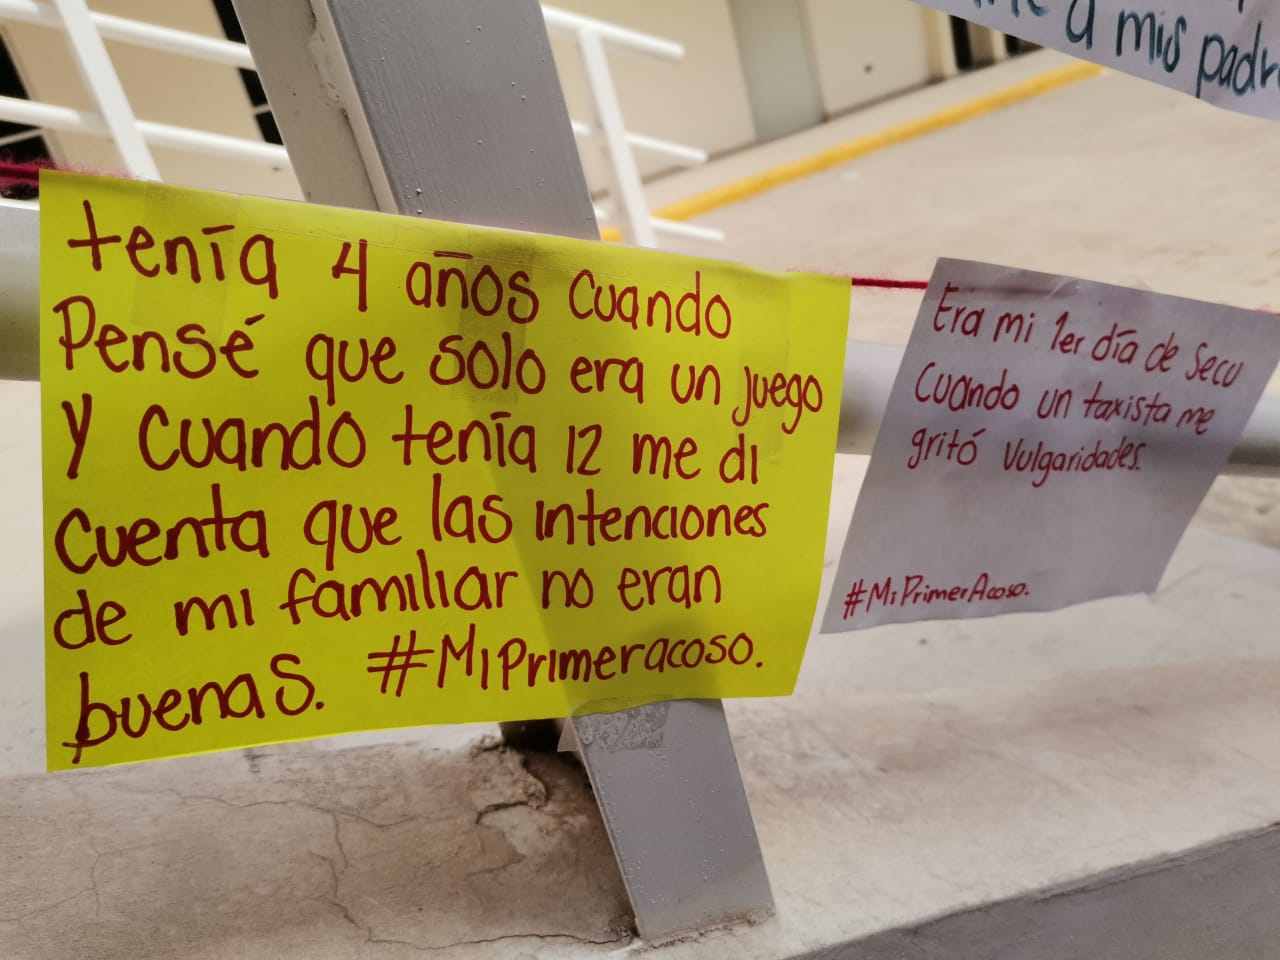 a mis
tenía 4 años cuando
Pensé que solo era un juego
y cuando tenía 12 me di
cuenta que las intenciones
de mi familiar no eran
buenas. #MiPrimeracoso.
Era mi 1er día de Secu
cuando un taxista me
gritó vulgaridades.
#MiPrimerAcoso.